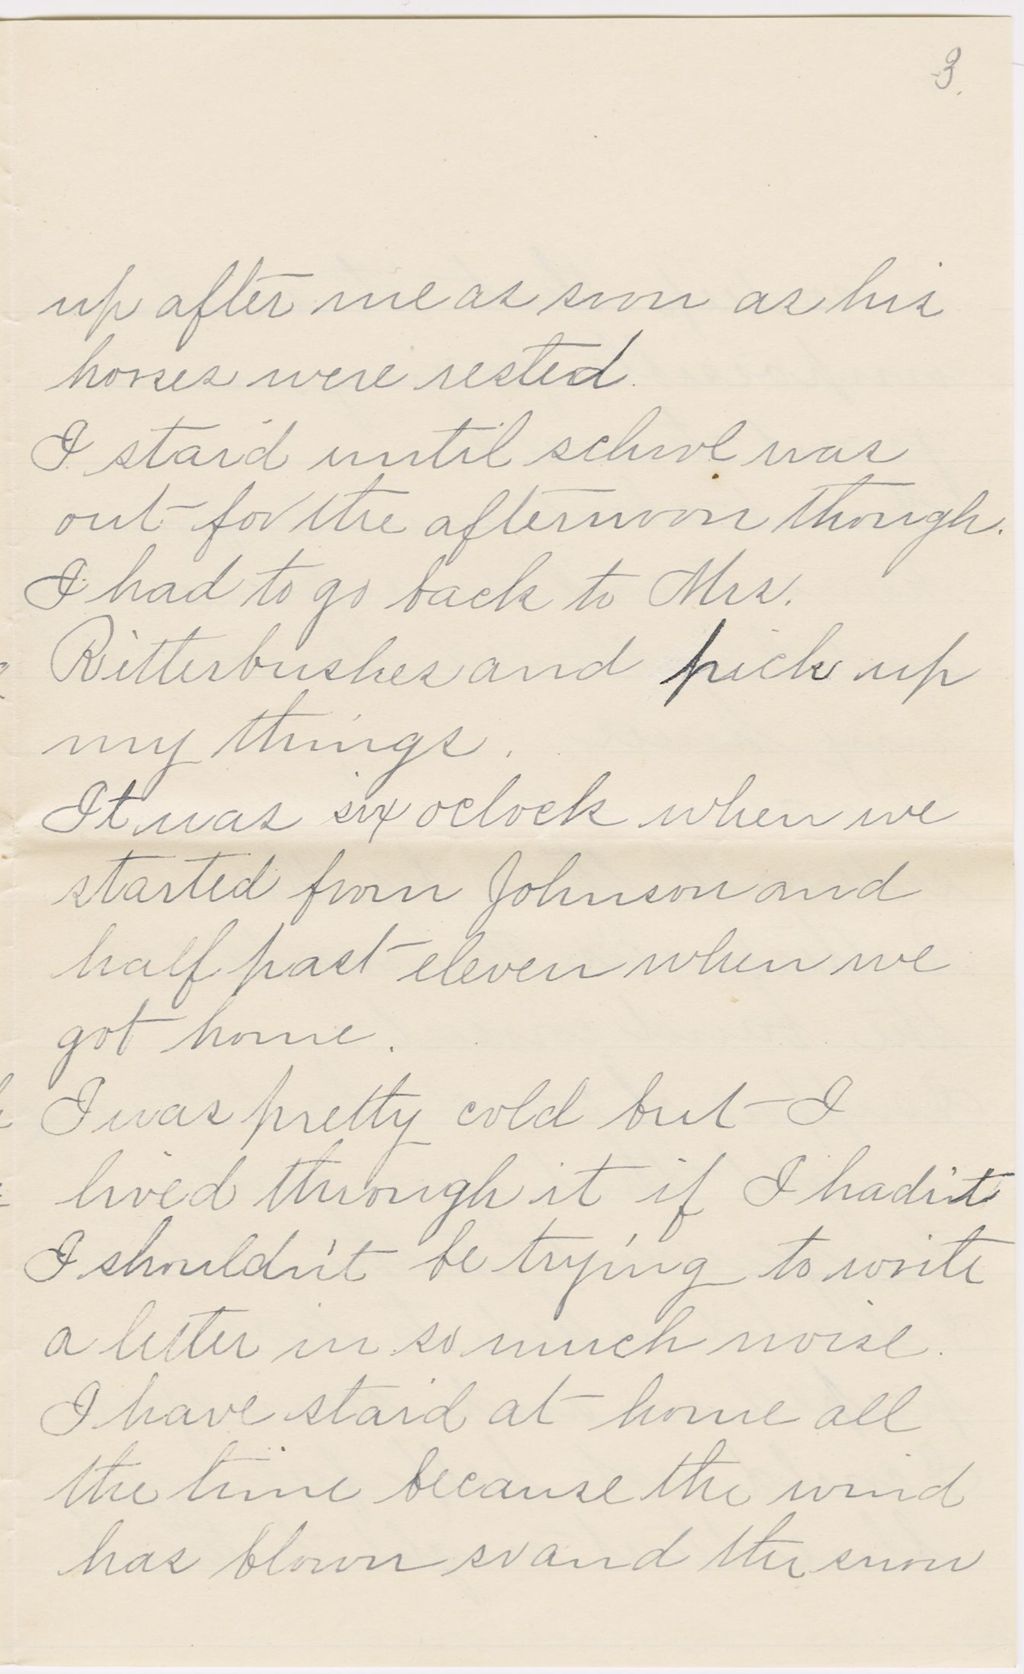 3.
up after me as soon as his
horses were rested.
I staid until school was
out for the afternoon though.
I had to go back to Mrs.
Ritterbushes and pick up
my things.
It was six oclock when we
started from Johnson and
half past eleven when we
got home.
I was pretty cold but I
lived through it if I had'nt
I should'nt be trying to write
a letter in so much noise.
I have staid at home all
the time because the wind
has blown so and the snow